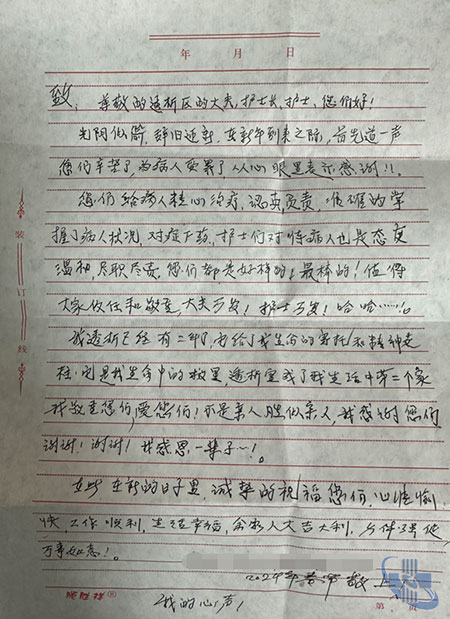 年 月 日
致,尊敬的透析区的大夫,护士长,护士,您们好!
光阴似箭,辞旧迎新,在新年到来之际,首先道一声
您们辛苦了,为病人受累了从心眼里表示感谢!!.
您们给病人精心治疗,认真,负责,准确的掌
握了病人状况,对症下药,护士们对待病人也是态度
温和,尽职尽责,您们都是好样的!最棒的!值得
大家信任和敬重,大夫万岁!护士万岁!哈哈……!。
我透析已经有二年了,它给了我生命的寄托和精神支
柱,它是我生命中的 透析室成了我生活中第二个家
我敬重您们,爱您们!不是亲人胜似亲人,我感谢您们
谢谢!谢谢!我感恩一辈子~!。
在此在新的日子里,诚挚的祝福您们,心情愉
快 工作顺利,生活幸福,合家人大吉大利,
万事如意!。
2024年春节 敬上
我的心声,
装 订 线
第 页